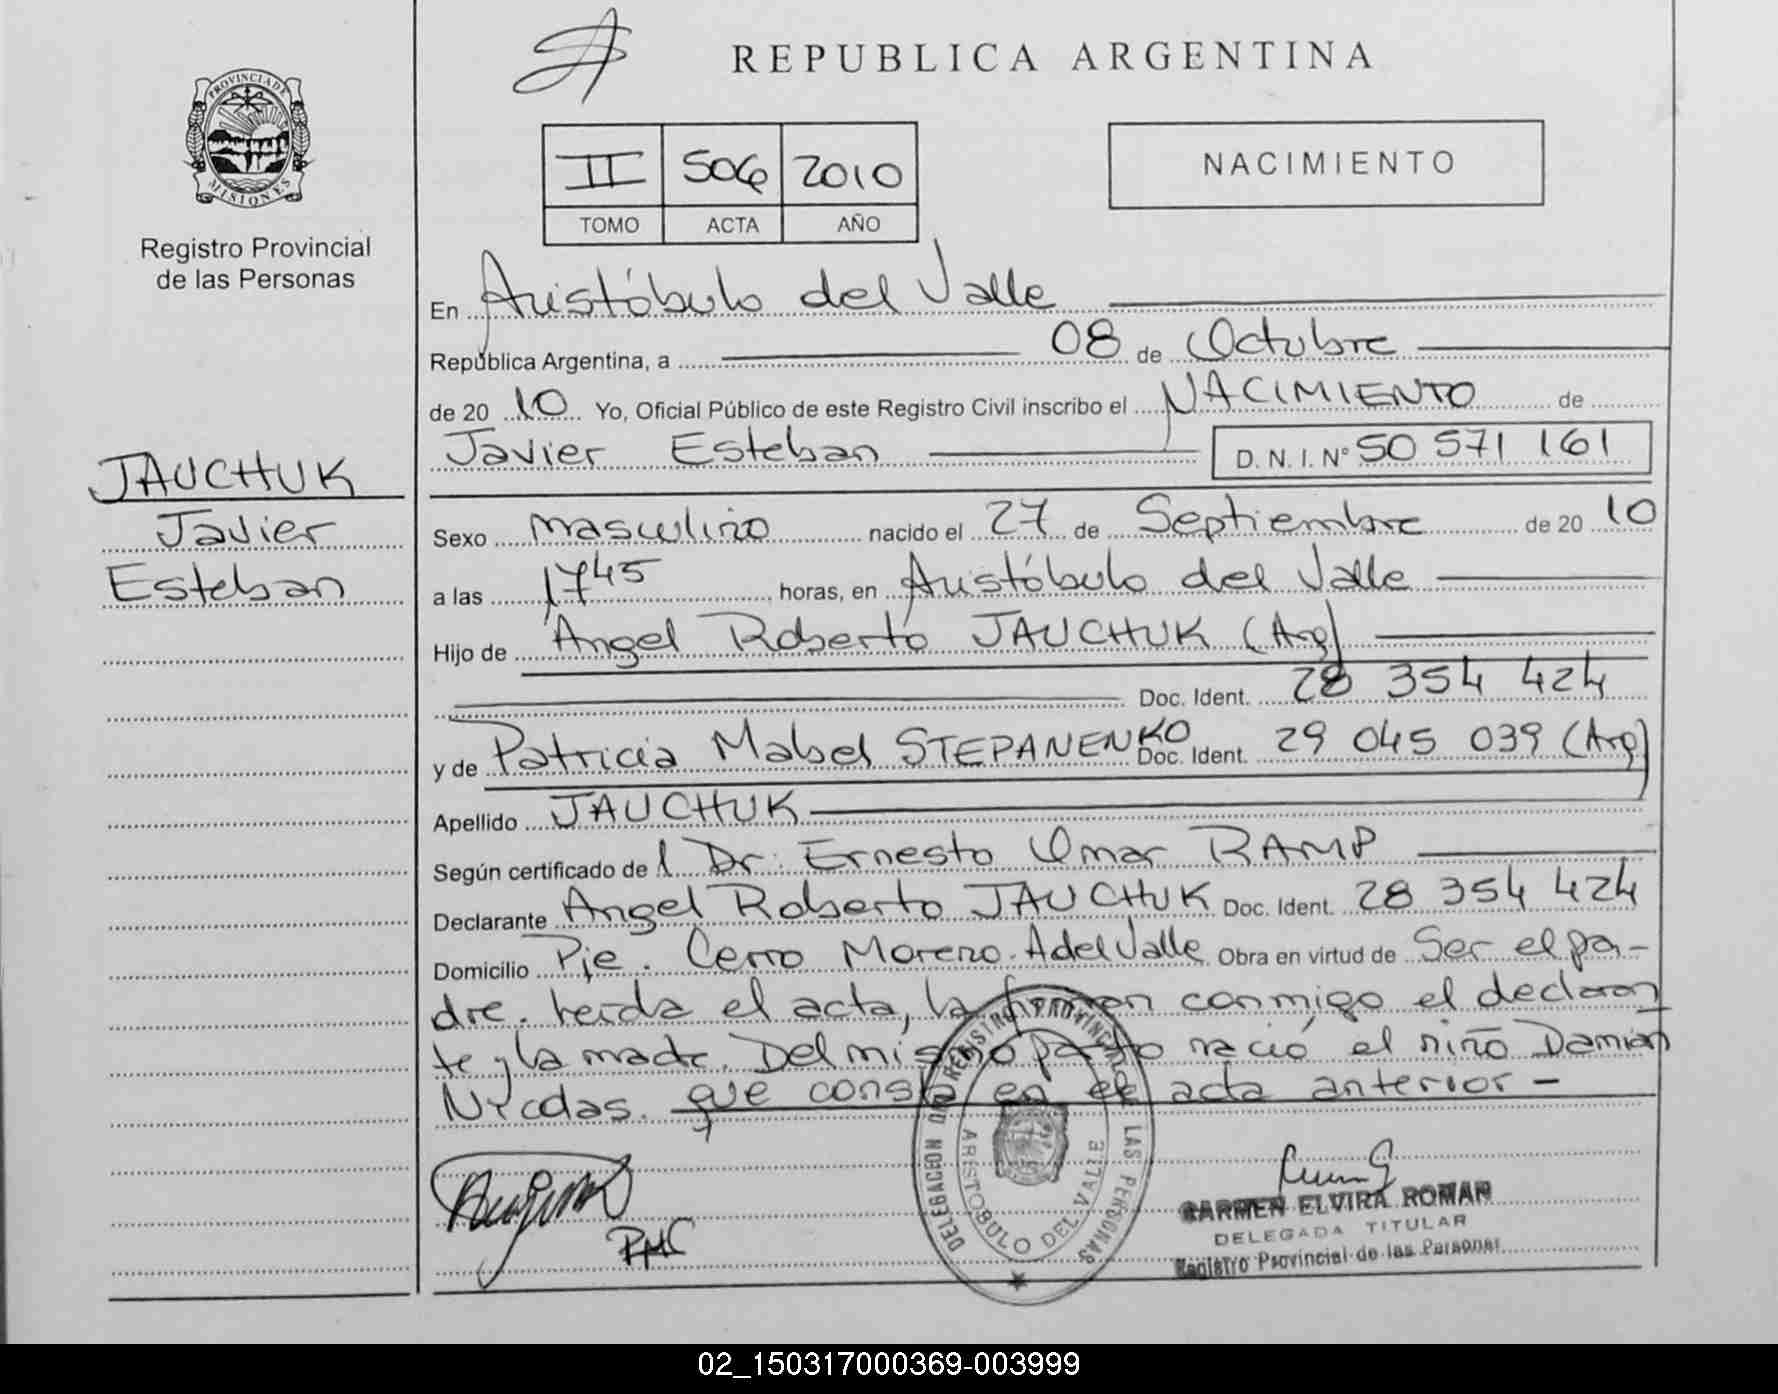 REPUBLICA ARGENTINA
PROVINCIA DE MISIONES
Registro Provincial
de las Personas
II 506 2010
TOMO ACTA AÑO
NACIMIENTO
En Aristóbulo del Valle
República Argentina, a 08 de Octubre
de 20 10 Yo, Oficial Público de este Registro Civil inscribo el NACIMIENTO de
Javier Esteban D.N.I. Nº 50 571 161
JAUCHUK
Javier
Esteban
Sexo masculino nacido el 27 de Septiembre de 20 10
a las 1745 horas, en Aristóbulo del Valle
Hijo de Angel Roberto JAUCHUK (Arg)
Doc. Ident. 28 354 424
y de Patricia Mabel STEPANENKO Doc. Ident. 29 045 039 (Arg)
Apellido JAUCHUK
Según certificado de l Dr. Ernesto Omar RAMP
Declarante Angel Roberto JAUCHUK Doc. Ident. 28 354 424
Domicilio Pje. Cerro Moreno. A del Valle Obra en virtud de Ser el pa-
dre. leída el acta, la firman conmigo el declaran
te y la madre. Del mismo parto nació el niño Damián
Nicolas. que consta en el acta anterior -
DELEGACION DEL REGISTRO PROVINCIAL DE LAS PERSONAS
ARISTOBULO DEL VALLE
CARMEN ELVIRA ROMAN
DELEGADA TITULAR
Registro Provincial de las Personas
02_150317000369-003999